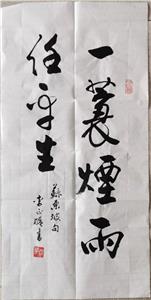 一蓑煙雨
任平生
蘇東坡句